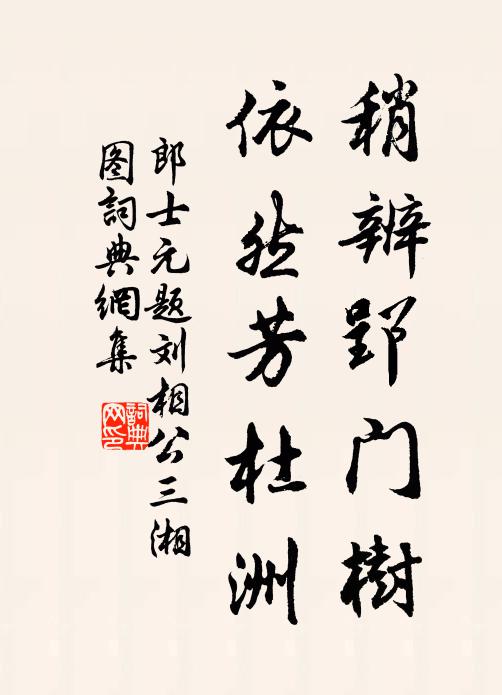 稍辨郢门樹
依然芳杜洲
郎士元题刘相公三湘
图詞典網集
詞典网印